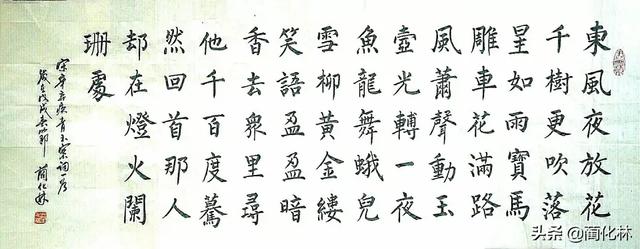 東風夜放花
千樹更吹落
星如雨寶馬
雕車花滿路
風蕭聲動玉
壺光轉一夜
魚龍舞蛾兒
雪柳黃金縷
笑語盈盈暗
香去衆里尋
他千百度驀
然回首那人
却在燈火闌
珊處
宋辛棄疾青玉案詞一首
戊戌 藺化林
头条 @藺化林